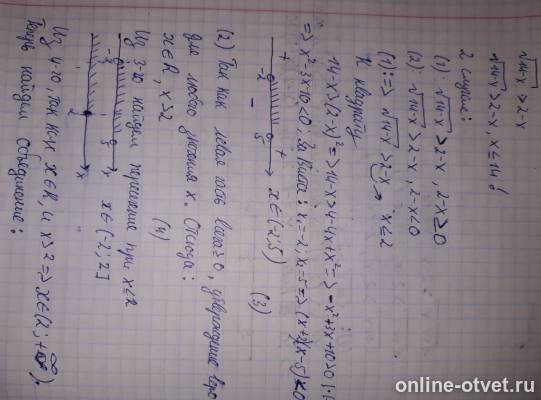 √14-x > 2-x
√14-x > 2-x, x ≤ 14!
2 случая:
(1): √14-x > 2-x, 2-x ≥ 0
(2): √14-x > 2-x, 2-x < 0
(1): => √14-x > 2-x, x ≤ 2
К квадрату
14-x > (2-x)² => 14-x > 4-4x+x² => -x²+3x+10 > 0 |·(
=> x²-3x-10 < 0; За Виета: x₁=-2; x₂=5 => (x+2)(x-5) < 0
+ -2 - 5 + x ∈ (-2; 5) (3)
(2) Так как левая часть всегда ≥ 0, утверждение верно
для любого значения x. Отсюда:
x ∈ R, x > 2 (4)
Из 3-го, найдем пересечение при x ≤ 2
-2 5 x
2 x
x ∈ (-2; 2]
Из 4-го, так же и x ∈ R, и x > 2 => x ∈ (2; +∞).
Теперь найдем объединение:
online-otvet.ru